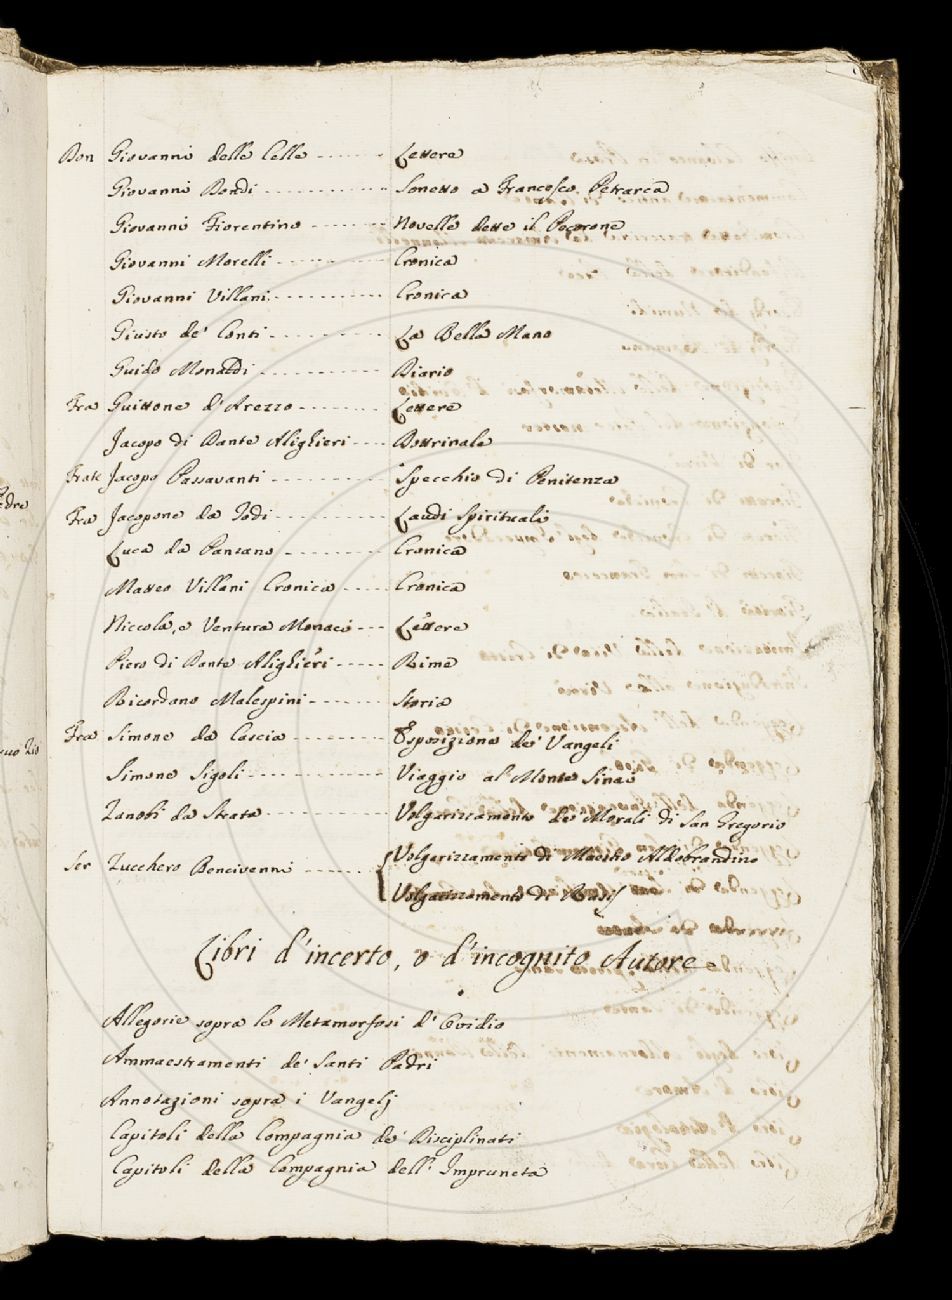 Don Giovanni delle Celle ------- Lettere
Giovanni Dondi ------------ Sonetto a Francesco Petrarca
Giovanni Fiorentino -------- Novelle dette il Pecorone
Giovanni Morelli ----------- Cronica
Giovanni Villani ----------- Cronica
Giusto de' Conti ----------- La Bella Mano
Guido Monaldi ------------ Diario
Fra Guittone d'Arezzo -------- Lettere
Jacopo di Dante Alighieri ---- Dottrinale
Frate Jacopo Passavanti ----------- Specchio di Penitenza
Fra Jacopone da Todi ---------- Laudi Spirituali
Luca da Panzano --------- Cronica
Matteo Villani Cronica ----- Cronica
Niccola, e Ventura Monaci --- Lettere
Piero di Dante Alighieri ----- Rime
Ricordano Malespini ------- Storia
Fra Simone da Cascia --------- Esposizione de' Vangeli
Simone Sigoli ------------- Viaggio al Monte Sinai
Zanobi da Strata ----------- Volgarizzamento de' Morali di San Gregorio
Ser Zucchero Bencivenni ------- { Volgarizzamento di Maestro Aldobrandino
Volgarizzamento di Rasis
Libri d'incerto, o d'incognito Autore
Allegorie sopra le Metamorfosi d'Ovidio
Ammaestramenti de' Santi Padri
Annotazioni sopra i Vangelj
Capitoli della Compagnia de' Disciplinati
Capitoli della Compagnia dell' Impruneta